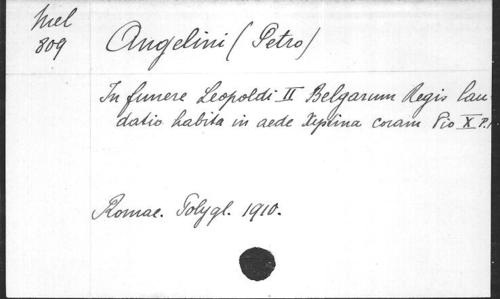 Mel
809
Angelini (Petro)
In funere Leopoldi II Belgarum Regis lau
datio habita in aede Xystina coram Pio X P.
Romae. Polygl. 1910.